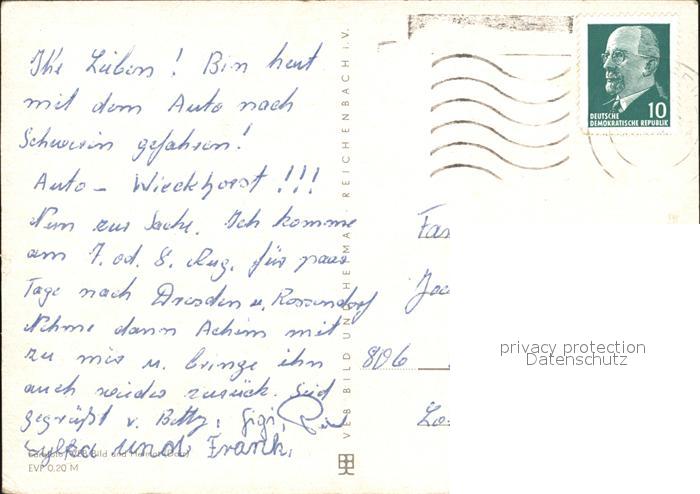 Ihr Lieben! Bin heut
mit dem Auto nach
Schwerin gefahren!
Auto - Wieckhorst!!!
Nun zur Sache. Ich komme
am 7. od. 8. Aug. für paar
Tage nach Dresden u. Rossendorf
Nehme dann Achim mit
zu mir u. bringe ihn
auch wieder zurück. Seid
gegrüßt v. Betty, Gigi,
und Frank.
EVP 0,20 M
VEB BILD UND HEIMAT REICHENBACH i.V.
10
DEUTSCHE
DEMOKRATISCHE REPUBLIK
806
privacy protection
Datenschutz